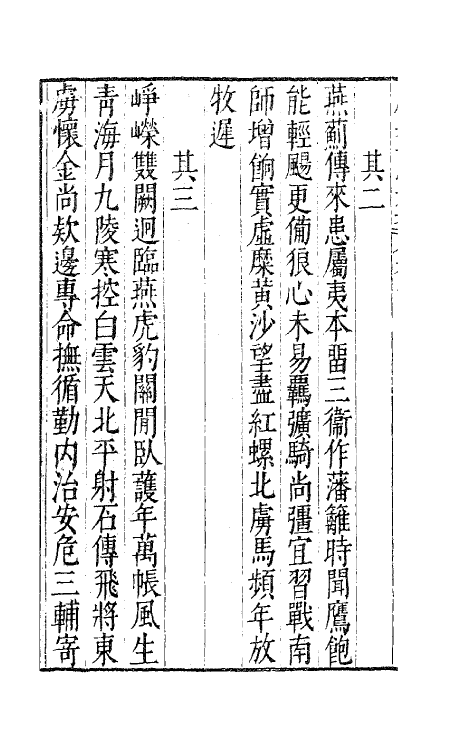 其二
燕薊傳來患屬夷本留三衞作藩籬時聞鷹飽
能輕颺更備狼心未易覊彍騎尚彊宜習戰南
師增餉實虛糜黃沙望盡紅螺北虜馬頻年放
牧遲
其三
崢嶸雙闕迥臨燕虎豹關閒臥護年萬帳風生
青海月九陵寒控白雲天北平射石傳飛將東
虜懷金尚欵邊專命撫循勤内治安危三輔寄